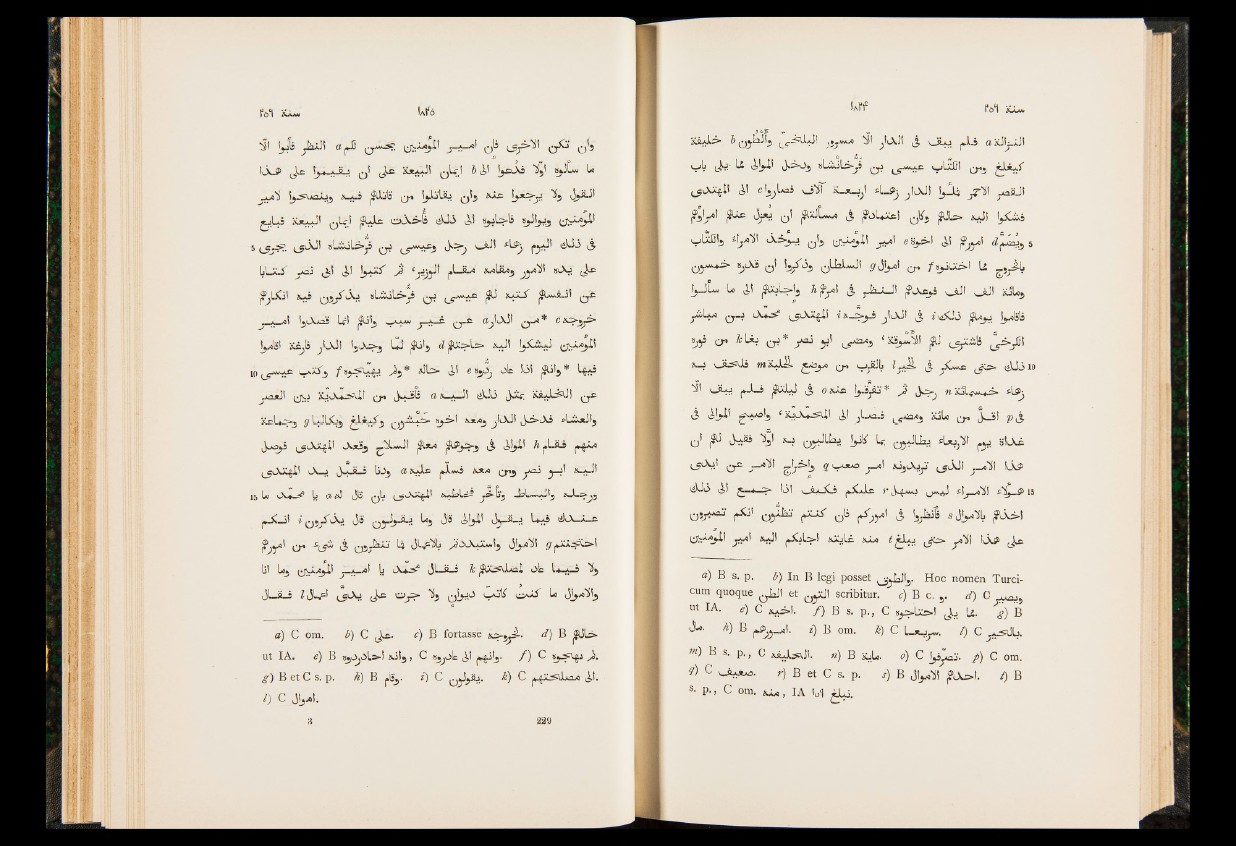 سنة ٢٥٦ ١٨٢٤
النزالة a فلم يبقَ فى الدار الّا مسرور البلخىّ وألطون b خليفة
كيغلغ ومن الكتّاب عيسى بن فرّخانشاه ودخل الموالى لما يلى باب
القصر الاحمر فملوا الدار زهاء اربعة آلاف فصاروا c الى المهتدى
فشكوا اليه حالهم وكان اعتمادهم فى مسألتهم ان يعزل عنهم امراؤهم
5 ويُضمّ d امورهم الى اخوة e امير المؤمنين وان يوخذ الامراء والكتّاب
بالخروج لما اختانوه f من اموال g السلطان وذكروا ان قدره خمسون
ومائة الف الف فوعدهم النظر فى امرهم h واجابتهم الى ما سألوا
فاقاموا يومهم ذلك i فى الدار فوجّه i المهتدى محمّد بن مباشر
الكرخىّ فاشترى لهم الأسوقة، ومضى ابو نصر *بن بغا k من فوره
10 ذلك حتى عسكر فى الحير l بالقرب من موضع الحلبة m فلحق به
زهاء خمسمائة n رجل ثم *تفرّقوا عنه o فى ليلتهم فلم يبق الّا
فى p اقلّ من مائة ومضى فصار الى المحمّديّة، واصبح الموالى فى
غداة يوم الاربعاء يطالبون بما كانوا يطالبون به اوّلا فقيل لهم ان
هذا الامر الذى تريدونه امر صعب q واخراج الامر عن ايدى
15 هؤلاء الامراء ليس بسهل r عليكم فكيف اذا جمع الى ذلك
اخذهم بالاموال s فأنظروا فى اموركم فان كنتم تظنّون انكم تصبرون
على هذا الامر حتى يبلغ t منه غايته اجابكم اليه امير المؤمنين
a) B s. p. b) In B legi posset والطوى. Hoc nomen Turci-
cum quoque الطن et التون scribitur. c) B c. و. d) C ويصير
ut IA. e) C اخيه. f) B s. p., C لما يلى احتاجوه. g) B
مال. h) B امورهم. i) B om. k) C سريعا. l) C بالحير.
m) B s. p., C الخليفه. n) B مايه. o) C تصرفوا. p) C om.
q) C ضعيف. r) B et C s. p. s) B اخذهم الاموال. t) B
s. p., C om. منه, IA نبلغ اذا.
سنة ٢٥٦ ١٨٢٥
وان تكن الاخرى فان امير المؤمنين يحسن لكم a النظر فأبوا الّا
ما سألوه اوّلا فدُعوا الى b ايمان البيعة على ان يقيموا على هذا
القول ولا يرجعوا عنه وان يقاتلوا من قاتلهم فيه وينصحوا لامير
المؤمنين ويوالوه فاجابوه الى ذلك فأخذت عليهم ايمان البيعة فبايع
5 فى ذلك اليوم زهاء الف رجل وعيسى بن فرّخانشاه الذى يجرى
على يده الامور ومقامه مقام الوزير، ثم كتبوا الى ابى نصر كتابا
عن انفسهم كتبه لهم عيسى بن فرّخانشاه يذكرون فيه انكارهم
خروجه c *من الدار a عن غير سبب وانهم انما قصدوا امير
المؤمنين ليشكوا اليه حاجتهم d وانهم لمّا وجدوا الدار فارغة اقاموا
10 فيها *وانهم اذا عاد ردّوه e الى حاله *ولم يهيّجوه f وكتب عيسى
عن الخليفة بمثل ذلك اليه a فأقبل من المحمّديّة بين العصر
والعشاء فدخل الدار ومعه اخوه حَبْشون وكيغلغ وبكالبا g وجماعة
منهم فقام h الموالى فى وجوههم معهم السلاح وقعد المهتدى فوصل
اليه ابو نصر ومن معه فسلّم عليه a ودنا فقبّل يد المهتدى
15 ورجله والبساط وتأخّر فخاطبه المهتدى بان قال له a يا محمّد ما
عندك فيما يقول الموالى قال وما يقولون قال يذكرون i انكم
احتجنتم g الاموال واستبددتم بالاعمال فما تنظرون فى شىء من امورهم
ولا فيما عاد لمصلحتهم k فقال محمّد يا امير المؤمنين وما انا
والاموال ما كنتُ كاتب ديوان ولا جرت على يدىّ اعمال l فقال
a) C om. b) C على. c) B fortasse لخروجه. d) B حالهم
ut IA. e) B وانه اخا وردوه, C وانهم الى عادروه. f) C ثم بهاجوه.
g) B et C s. p. h) B وقم. i) C يقولون. k) C الى مصلحتهم.
l) C اموال.
3 229